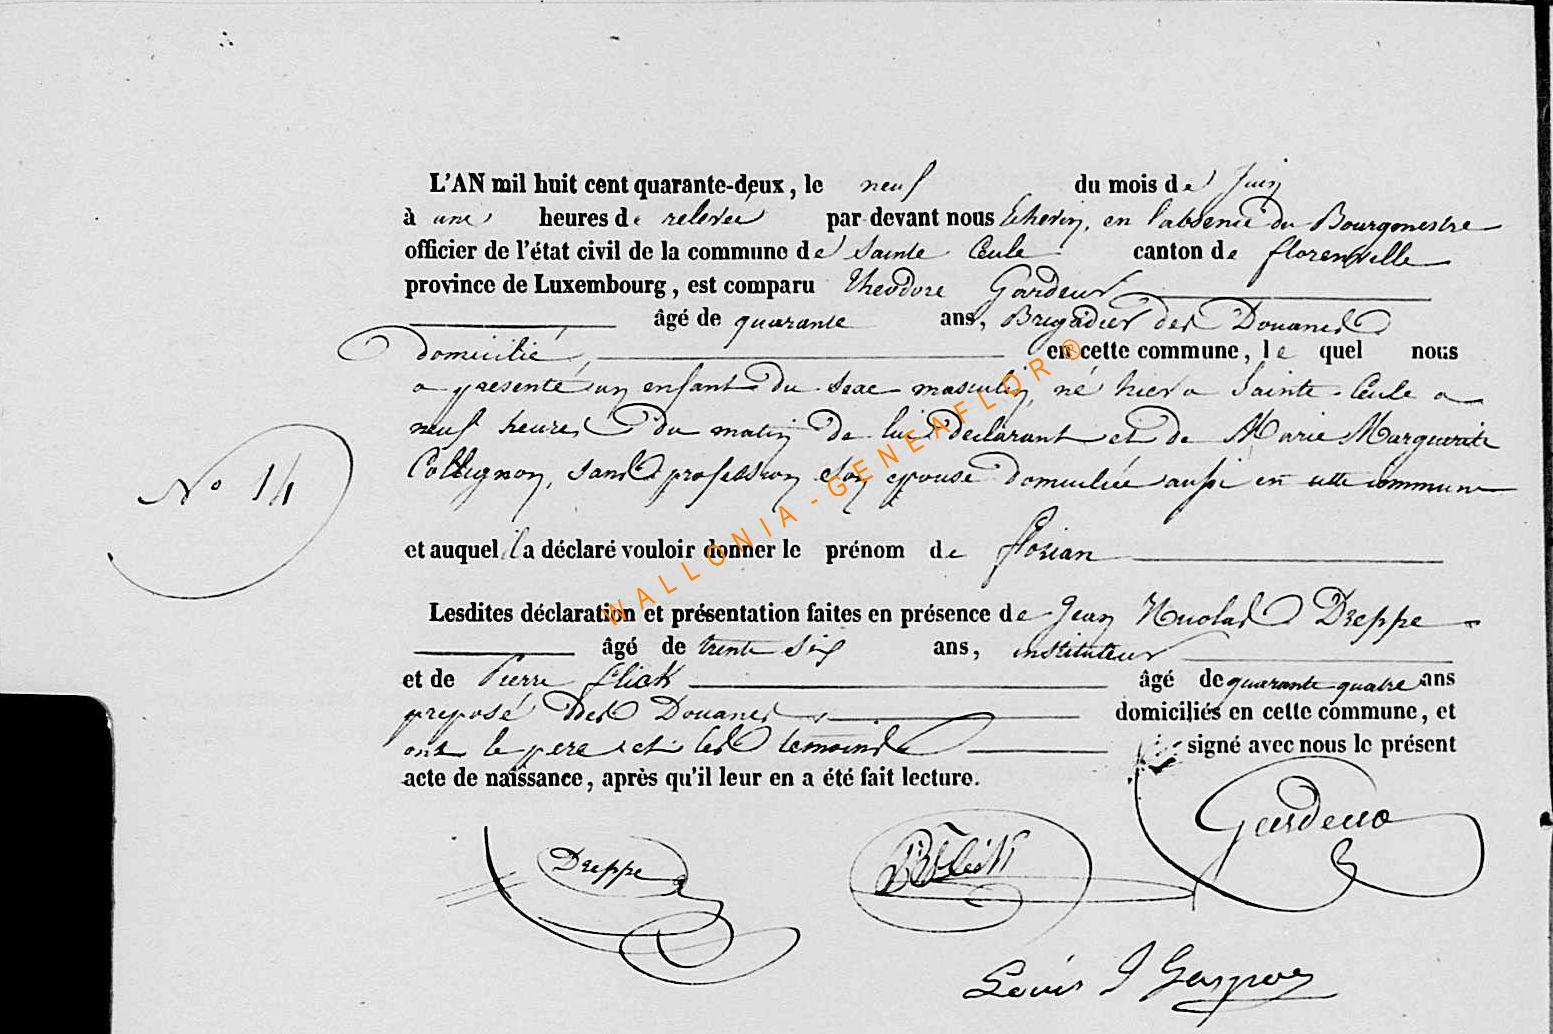 L'AN mil huit cent quarante-deux, le neuf du mois de Juin
à une heures de relevée par devant nous Echevin, en l'absence du Bourgmestre
officier de l'état civil de la commune de Sainte Cecile canton de florenville
province de Luxembourg, est comparu Theodore Gardeur
âgé de quarante ans, Brigadier des Douanes
domicilié, en cette commune, le quel nous
a présenté un enfant du sexe masculin, né hier a Sainte-Cecile a
neuf heures du matin de lui declarant et de Marie Marguerite
Collignon, sans profession son epouse domiciliée aussi en cette commune
No 14
et auquel il a déclaré vouloir donner le prénom de florian
Lesdites déclaration et présentation faites en présence de Jean Nicolas Dreppe
âgé de trente six ans, instituteur
et de Pierre âgé de quarante quatre ans
preposé des Douanes domiciliés en cette commune, et
ont le pere et les temoins signé avec nous le présent
acte de naissance, après qu'il leur en a été fait lecture.
Gardeur
Dreppe
Louis J
WALLONIA - GENEAFLOR ®